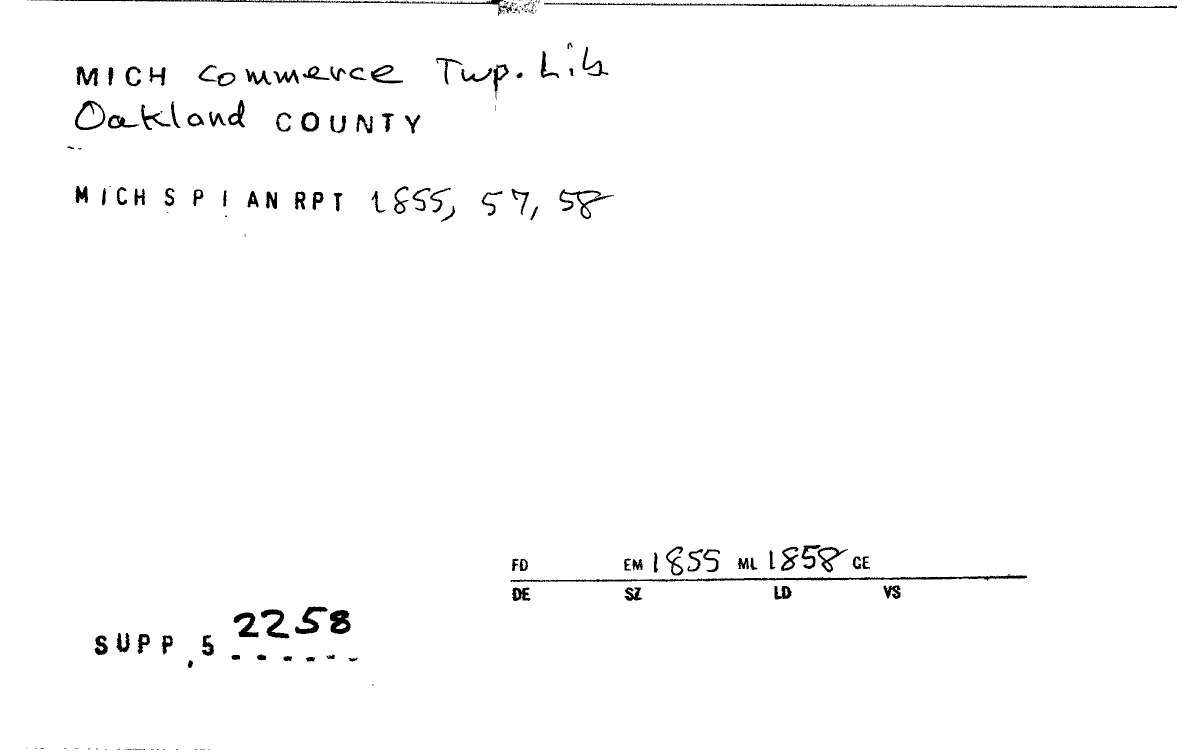 MICH Commerce Twp. Lib
Oakland COUNTY
MICH S P I AN RPT 1855, 57, 58
FD EM 1855 ML 1858 CE
DE SZ LD VS
SUPP, 5 2258